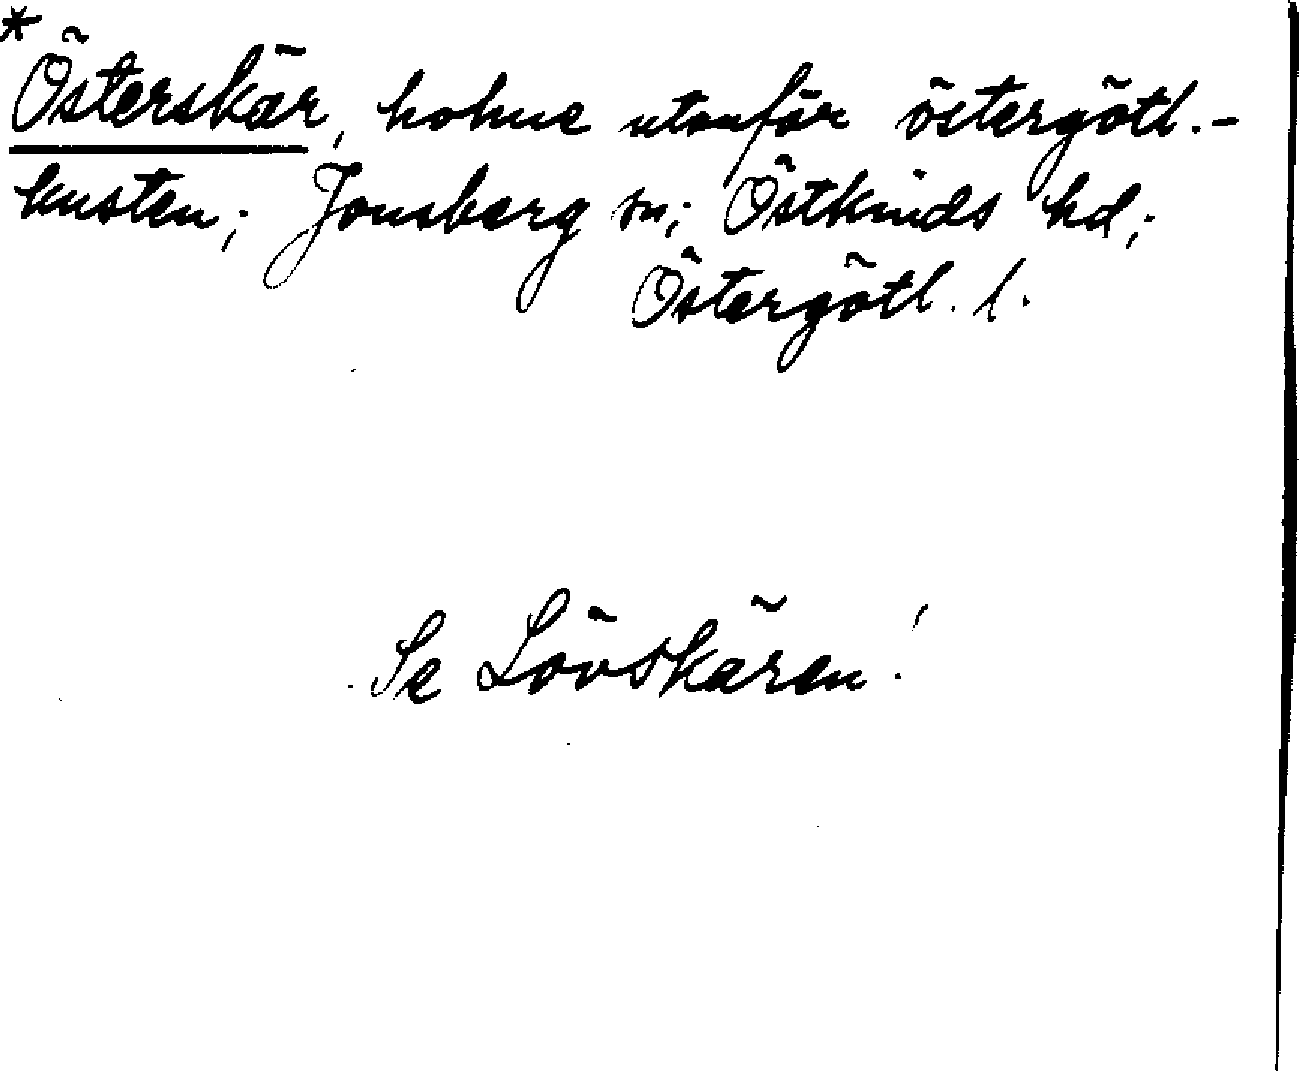 * Österskär, holme utanför östergötl.-
kusten; Jonsberg sn; Östkinds hd;
Östergötl. l.
Se Lövskären!